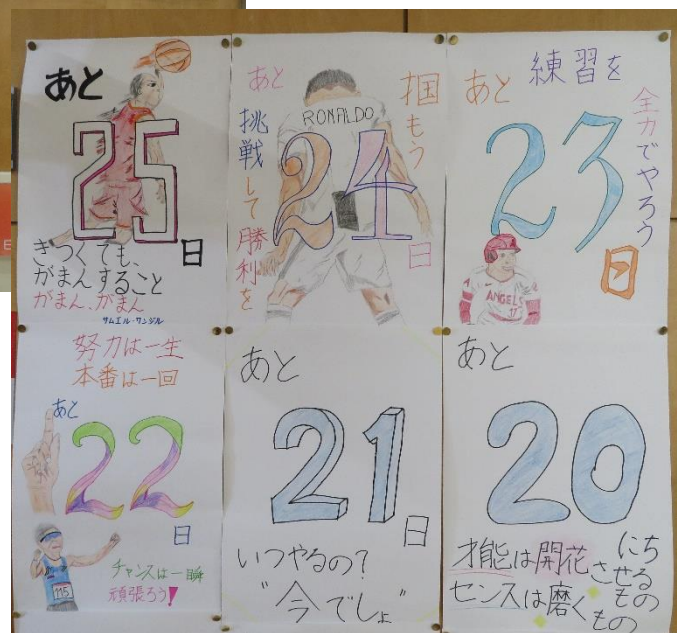 あと
25
日
きつくても、
がまんすること
がまん、がまん
サムエル・ワンジル
あと
RONALDO
24
日
挑戦して勝利を
掴もう
あと
練習を
全力でやろう
23
日
ANGELS
17
努力は一生
本番は一回
あと
22
日
115
チャンスは一瞬
頑張ろう!
あと
21
日
いつやるの?
"今でしょ"
あと
20
日
才能は開花させるもの
センスは磨くもの